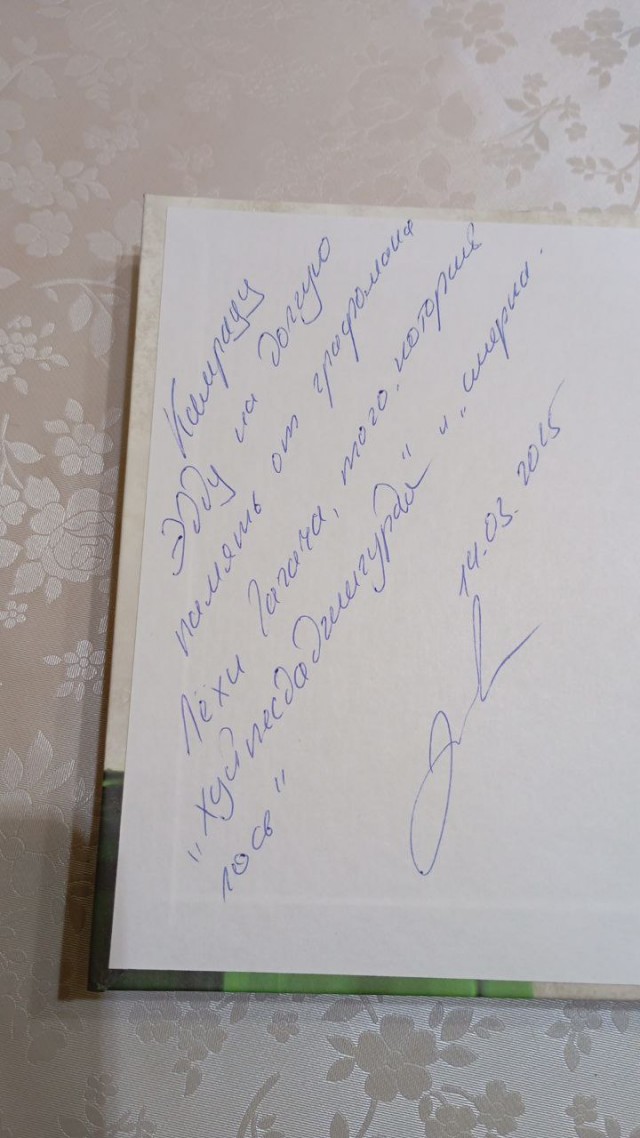 Камраду
Эдду на долгую
память от графомана
Лёхи Гагача, того, который
"хуйпесдаджигурда" и "умерла
лось"
14.03.2015